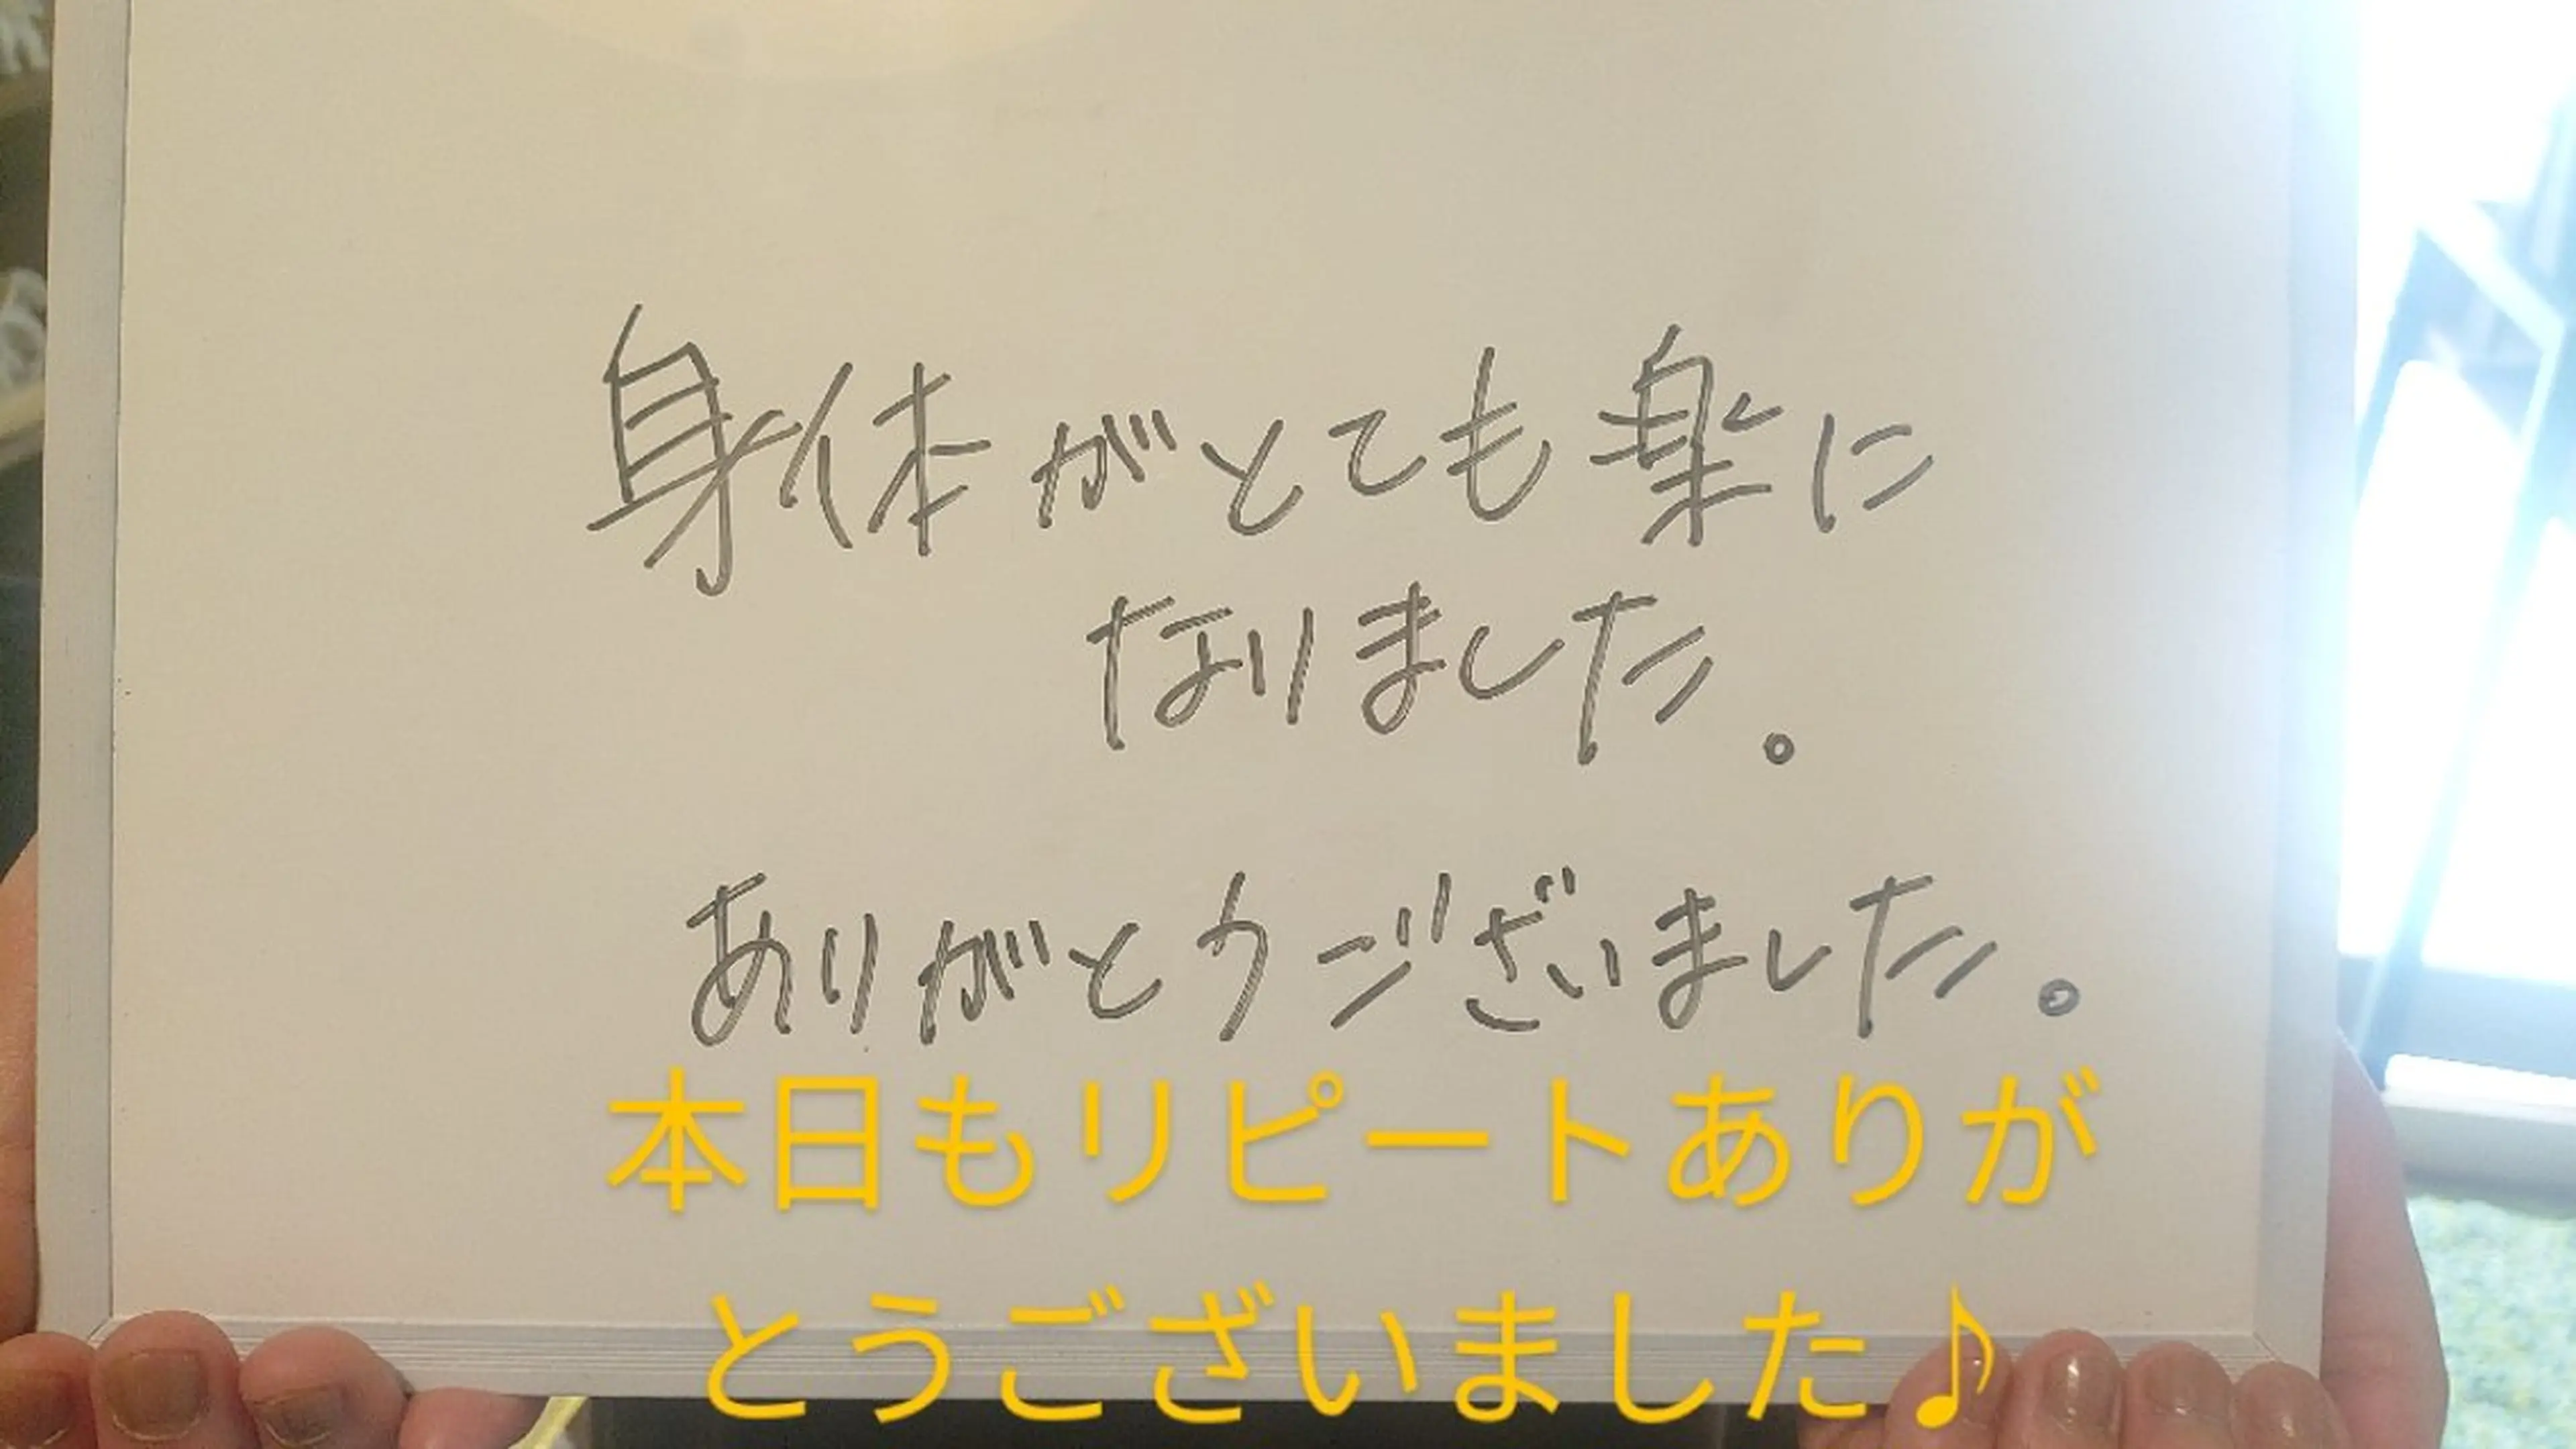 身体がとても楽に
なりました。
ありがとうございました。
本日もリピートありが
とうございました♪